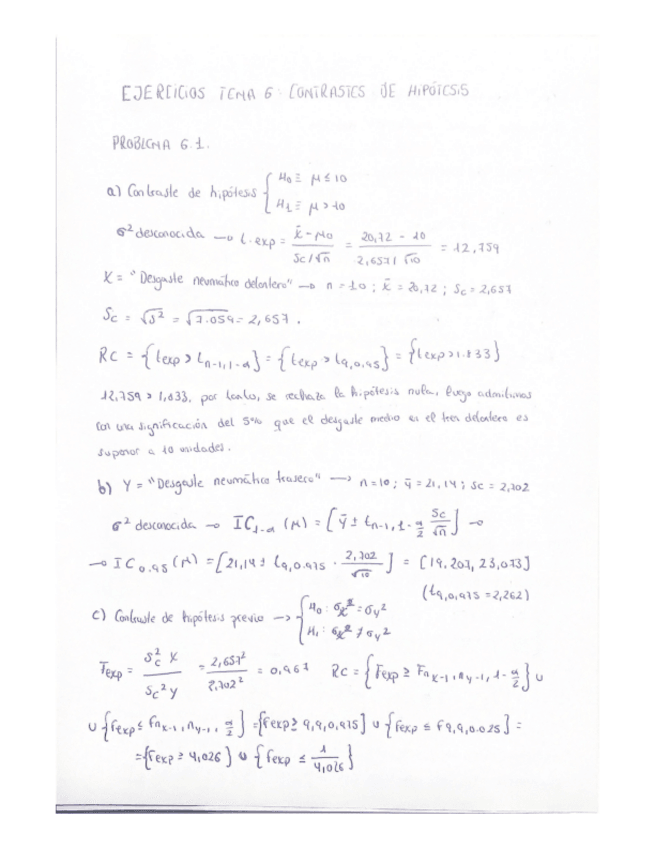 EJERCICIOS TEMA 6: CONTRASTES DE HIPÓTESIS
PROBLEMA 6.1.
a) Contraste de hipótesis { H₀ ≡ μ ≤ 10
H₁ ≡ μ > 10
σ² desconocida → t.exp = (x̄ - μ₀)/(Sc/√n) = (20,72 - 10)/(2,657/√10) = 12,759
X = "Desgaste neumático delantero" → n = 10 ; x̄ = 20,72 ; Sc = 2,657
Sc = √S² = √7.059 = 2,657.
RC = {texp > t n-1, 1-α} = {texp > t 9,0,95} = {texp > 1.833}
12,759 > 1,833, por tanto, se rechaza la hipótesis nula, luego admitimos
con una significación del 5% que el desgaste medio en el tren delantero es
superior a 10 unidades.
b) Y = "Desgaste neumático trasero" → n = 10 ; ȳ = 21,14 ; Sc = 2,702
σ² desconocida → IC 1-α (μ) = [ȳ ± t n-1, 1-α/2 Sc/√n] →
→ IC 0.95 (μ) = [21,14 ± t 9,0.975 · 2,702/√10] = [19,207, 23,073]
(t 9,0,975 = 2,262)
c) Contraste de hipótesis previo → { H₀ : σx² = σy²
H₁ : σx² ≠ σy²
Fexp = Sc² X / Sc² Y = 2,657²/2,702² = 0,967 RC = {Fexp ≥ F nx-1, ny-1, 1-α/2} ∪
∪ {Fexp ≤ F nx-1, ny-1, α/2} = {Fexp ≥ 9,9,0,975} ∪ {Fexp ≤ F 9,9,0.025} =
= {Fexp ≥ 4,026} ∪ {Fexp ≤ 1/4,026}